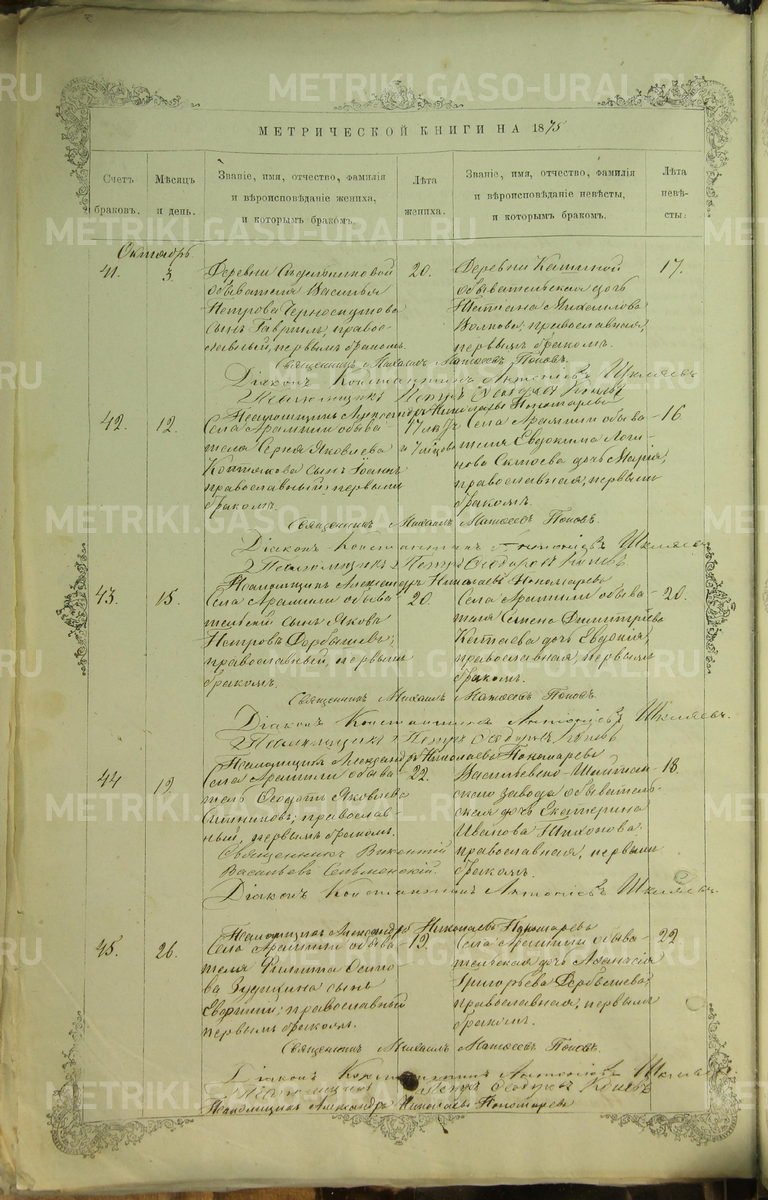 METRIKI.GASO-URAL.RU
МЕТРИЧЕСКОЙ КНИГИ НА 1875
Счетъ браковъ.
Мѣсяцъ и день.
Званіе, имя, отчество, фамилія и вѣроисповѣданіе жениха, и которымъ бракомъ.
Лѣта жениха.
Званіе, имя, отчество, фамилія и вѣроисповѣданіе невѣсты, и которымъ бракомъ.
Лѣта невѣсты.
Октябрь
41. 3.
Деревни
обывателя Василья
Петрова
сынъ Гавріилъ, православный, первымъ бракомъ.
20.
Деревни
обывательская дочь
Михайлова
православная,
первымъ бракомъ.
17.
Священникъ Михаилъ Матѳеевъ Поповъ.
Діаконъ Константинъ Антоніевъ Шкляевъ
Псаломщикъ Петръ Ѳеодоровъ
Псаломщикъ Александръ Николаевъ Пономаревъ
42. 12.
Села Арамили обывателя Сергѣя Яковлева
сынъ Іоаннъ
православный, первымъ
бракомъ.
17 лѣтъ
и 7 мѣсяцевъ
Села Арамили обывателя Евдокима Логинова
дочь Марія,
православная, первымъ
бракомъ.
16.
Священникъ Михаилъ Матѳеевъ Поповъ.
Діаконъ Константинъ Антоніевъ Шкляевъ
Псаломщикъ Петръ Ѳеодоровъ
Псаломщикъ Александръ Николаевъ Пономаревъ
43. 15.
Села Арамили обывательскій сынъ Яковъ
Петровъ Дорбышевъ,
православный, первымъ
бракомъ.
20.
Села Арамили обывателя Семена Димитріева
Китаева дочь Евдокія,
православная, первымъ
бракомъ.
20.
Священникъ Михаилъ Матѳеевъ Поповъ.
Діаконъ Константинъ Антоніевъ Шкляевъ.
Псаломщикъ Петръ Ѳеодоровъ
Псаломщикъ Александръ Николаевъ Пономаревъ
44 19.
Села Арамили обыватель Ѳеодотъ Яковлевъ
Ситниковъ, православный, первымъ бракомъ.
22.
Васильевско-Шайтанскаго завода обывательская дочь Екатерина
Иванова
православная, первымъ
бракомъ.
18.
Священникъ Викентій
Васильевъ Сельменскій.
Діаконъ Константинъ Антоніевъ Шкляевъ.
Псаломщикъ Александръ Николаевъ Пономаревъ
45. 26.
Села Арамили обывателя Филиппа Осипова
сынъ
православный
первымъ бракомъ.
19.
Села Арамили обывательская дочь Аѳанасія
Григорьева Дорбышева,
православная, первымъ
бракомъ.
22
Священникъ Михаилъ Матѳеевъ Поповъ.
Діаконъ Константинъ Антоніевъ Шкляевъ
Псаломщикъ Петръ Ѳеодоровъ
Псаломщикъ Александръ Николаевъ Пономаревъ